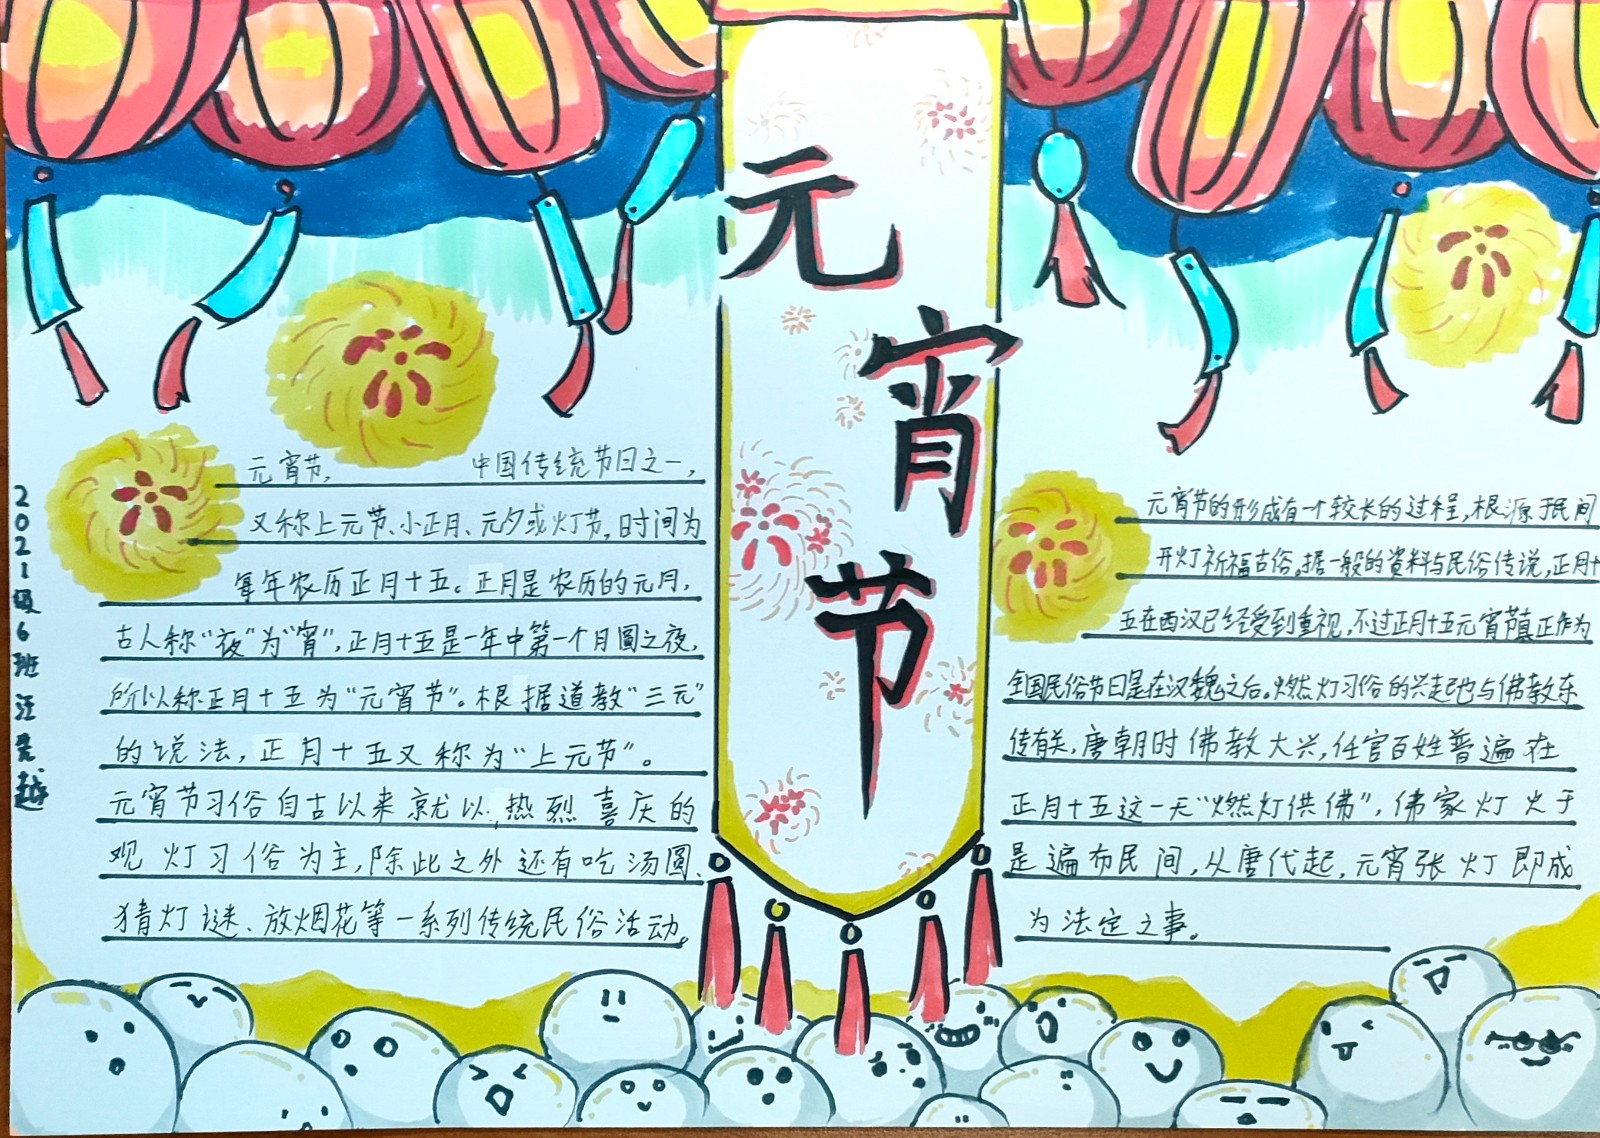 元宵节
2021级6班汪昱越
元宵节, 中国传统节日之一,
又称上元节、小正月、元夕或灯节,时间为
每年农历正月十五。正月是农历的元月,
古人称“夜”为“宵”,正月十五是一年中第一个月圆之夜,
所以称正月十五为“元宵节”。根据道教“三元”
的说法,正月十五又称为“上元节”。
元宵节习俗自古以来就以热烈喜庆的
观灯习俗为主,除此之外还有吃汤圆、
猜灯谜、放烟花等一系列传统民俗活动。
元宵节的形成有一个较长的过程,根源于民间
开灯祈福古俗。据一般的资料与民俗传说,正月十
五在西汉已经受到重视,不过正月十五元宵节真正作为
全国民俗节日是在汉魏之后。燃灯习俗的兴起也与佛教东
传有关,唐朝时佛教大兴,任官百姓普遍在
正月十五这一天“燃灯供佛”,佛家灯火于
是遍布民间,从唐代起,元宵张灯即成
为法定之事。